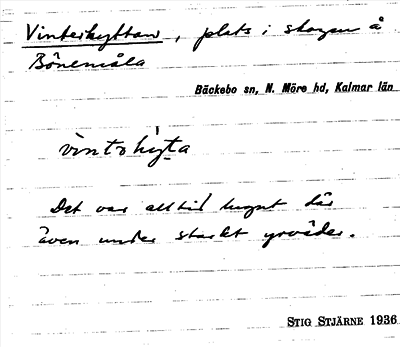 Vinterhyttan, plats i skogen å
Bönemåla
Bäckebo sn, N. Möre hd, Kalmar län
vintərhyta
Det var alltid lugnt där
även under starkt yrväder.
STIG STJÄRNE 1936